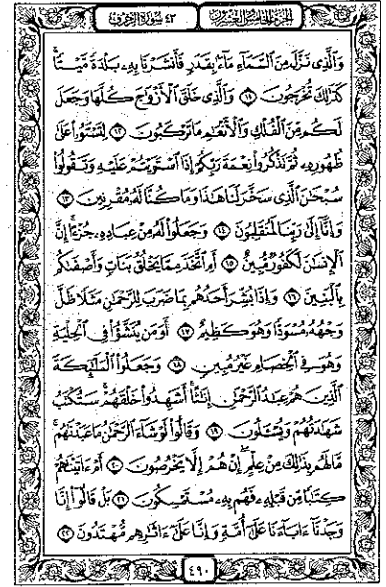 الجزء الخامس والعشرون
٤٣ سورة الزخرف
وَٱلَّذِى نَزَّلَ مِنَ ٱلسَّمَآءِ مَآءًۢ بِقَدَرٍ فَأَنشَرْنَا بِهِۦ بَلْدَةً مَّيْتًاۚ
كَذَٰلِكَ تُخْرَجُونَ ١١ وَٱلَّذِى خَلَقَ ٱلْأَزْوَٰجَ كُلَّهَا وَجَعَلَ
لَكُم مِّنَ ٱلْفُلْكِ وَٱلْأَنْعَٰمِ مَا تَرْكَبُونَ ١٢ لِتَسْتَوُۥا۟ عَلَىٰ
ظُهُورِهِۦ ثُمَّ تَذْكُرُوا۟ نِعْمَةَ رَبِّكُمْ إِذَا ٱسْتَوَيْتُمْ عَلَيْهِ وَتَقُولُوا۟
سُبْحَٰنَ ٱلَّذِى سَخَّرَ لَنَا هَٰذَا وَمَا كُنَّا لَهُۥ مُقْرِنِينَ ١٣
وَإِنَّآ إِلَىٰ رَبِّنَا لَمُنقَلِبُونَ ١٤ وَجَعَلُوا۟ لَهُۥ مِنْ عِبَادِهِۦ جُزْءًاۚ إِنَّ
ٱلْإِنسَٰنَ لَكَفُورٌ مُّبِينٌ ١٥ أَمِ ٱتَّخَذَ مِمَّا يَخْلُقُ بَنَاتٍ وَأَصْفَىٰكُم
بِٱلْبَنِينَ ١٦ وَإِذَا بُشِّرَ أَحَدُهُم بِمَا ضَرَبَ لِلرَّحْمَٰنِ مَثَلًا ظَلَّ
وَجْهُهُۥ مُسْوَدًّا وَهُوَ كَظِيمٌ ١٧ أَوَمَن يُنَشَّؤُا۟ فِى ٱلْحِلْيَةِ
وَهُوَ فِى ٱلْخِصَامِ غَيْرُ مُبِينٍ ١٨ وَجَعَلُوا۟ ٱلْمَلَٰٓئِكَةَ
ٱلَّذِينَ هُمْ عِبَٰدُ ٱلرَّحْمَٰنِ إِنَٰثًاۚ أَشَهِدُوا۟ خَلْقَهُمْۚ سَتُكْتَبُ
شَهَٰدَتُهُمْ وَيُسْـَٔلُونَ ١٩ وَقَالُوا۟ لَوْ شَآءَ ٱلرَّحْمَٰنُ مَا عَبَدْنَٰهُمۗ
مَّا لَهُم بِذَٰلِكَ مِنْ عِلْمٍۖ إِنْ هُمْ إِلَّا يَخْرُصُونَ ٢٠ أَمْ ءَاتَيْنَٰهُمْ
كِتَٰبًا مِّن قَبْلِهِۦ فَهُم بِهِۦ مُسْتَمْسِكُونَ ٢١ بَلْ قَالُوٓا۟ إِنَّا
وَجَدْنَآ ءَابَآءَنَا عَلَىٰٓ أُمَّةٍ وَإِنَّا عَلَىٰٓ ءَاثَٰرِهِم مُّهْتَدُونَ ٢٢
٤٩٠